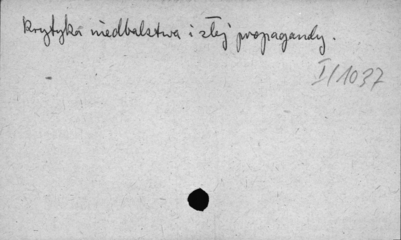 Krytyka niedbalstwa i złej propagandy.
I/1037